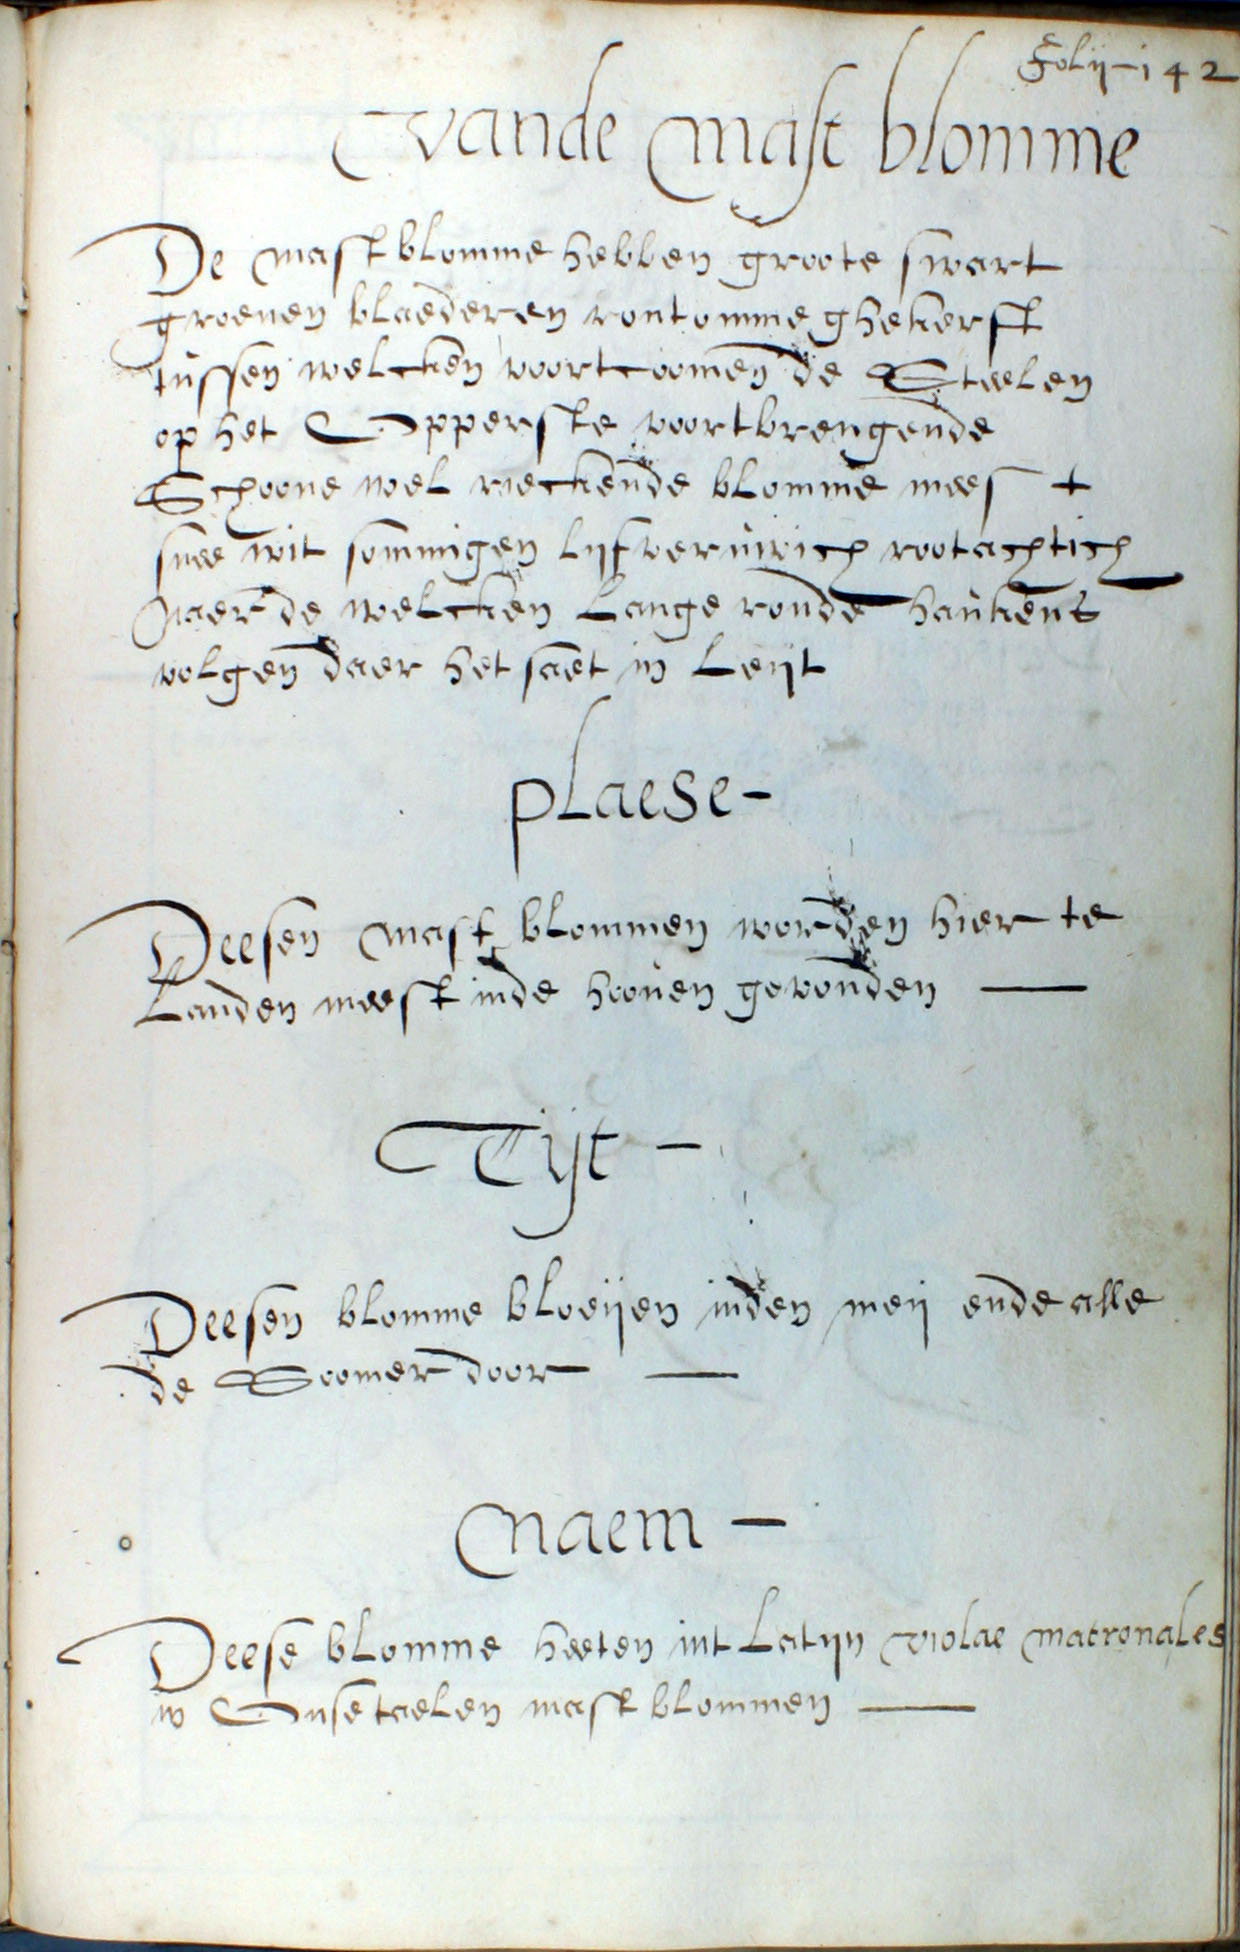 Folij 142
vande mast blomme
De mastblomme hebben groote swart
groenen blaederen rontomme ghekerft
tussen welcken voortcoomen de Steelen
op het Opperste voortbrengende
Schoone wel rieckende blomme mees t
snee wit sommigen lijfverwich rootachtich
Naer de welcken Lange ronde haukens
volgen daer het saet in Leijt
plaese -
Deesen mast blommen worden hier te
Landen meest inde hooven gevonden —
Tijt -
Deesen blomme bloeijen inden meij ende alle
de Soomer door —
Naem -
Deese blomme heeten int Latijn violae matronales
in Onse taelen mast blommen —